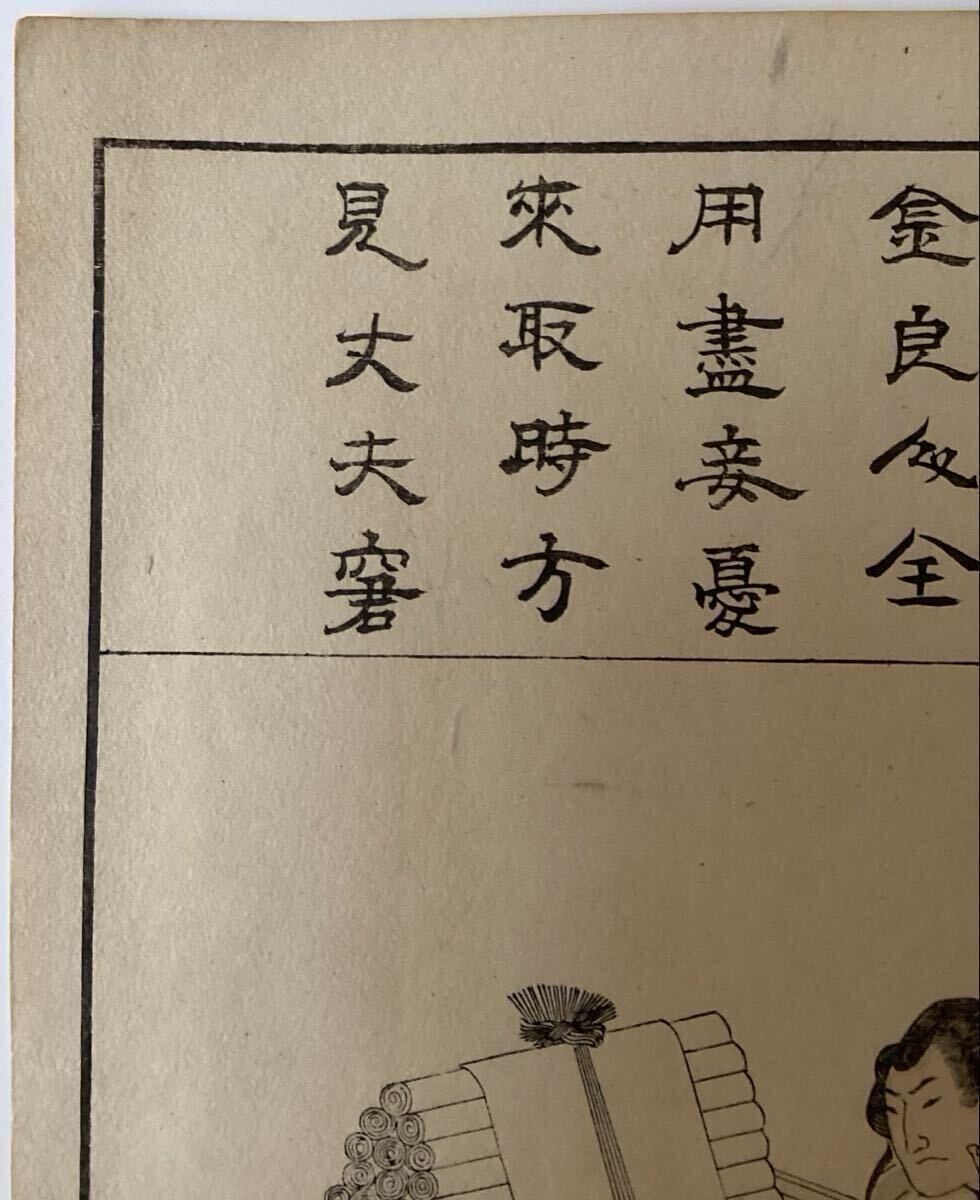 金良全
用盡妾憂
來取時方
見丈夫窘